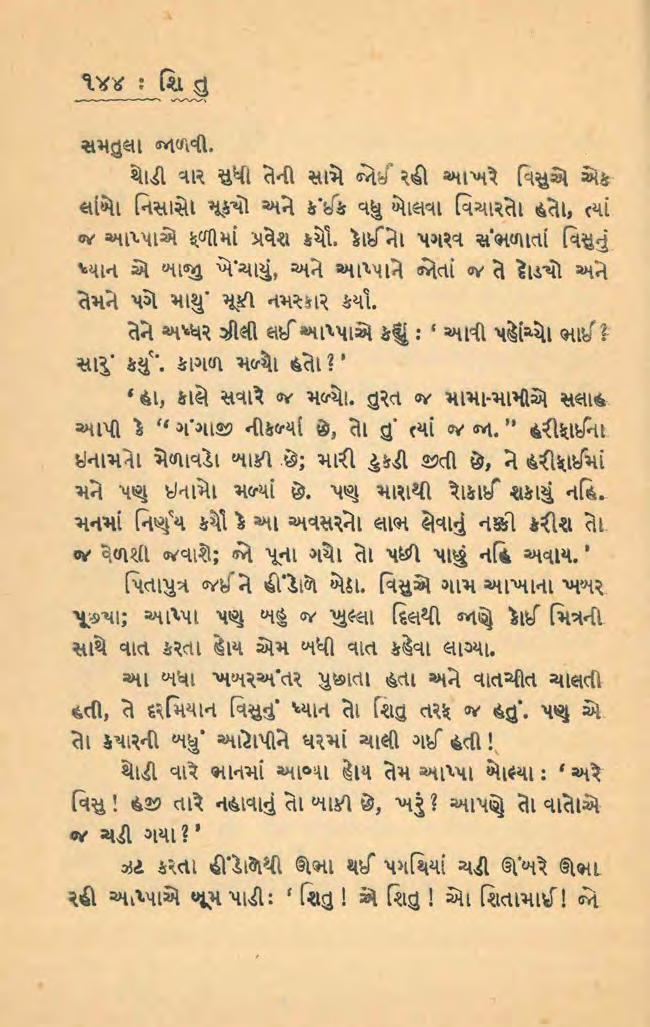 ૧૪૪ : શિ તુ
સમતુલા જાળવી.
થોડી વાર સુધી તેની સામે જોઈ રહી આખરે વિસુએ એક
લાંબો નિસાસો મૂક્યો અને કંઈક વધુ બોલવા વિચારતો હતો, ત્યાં
જ આપ્પાએ ફળીમાં પ્રવેશ કર્યો. કોઈનો પગરવ સંભળાતાં વિસુનું
ધ્યાન એ બાજુ ખેંચાયું, અને આપ્પાને જોતાં જ તે દોડ્યો અને
તેમને પગે માથું મૂકી નમસ્કાર કર્યા.
તેને અધ્ધર ઝીલી લઈ આપ્પાએ કહ્યું : ‘ આવી પહોંચ્યો ભાઈ ?
સારું કર્યું. કાગળ મળ્યો હતો ? ’
‘ હા, કાલે સવારે જ મળ્યો. તુરત જ મામા-મામીએ સલાહ
આપી કે “ ગંગાજી નીકળ્યાં છે, તો તું ત્યાં જ જા. ” હરીફાઈના
ઇનામનો મેળાવડો બાકી છે; મારી ટુકડી જીતી છે, ને હરીફાઈમાં
મને પણ ઇનામો મળ્યાં છે. પણ મારાથી રોકાઈ શકાયું નહિ.
મનમાં નિર્ણય કર્યો કે આ અવસરનો લાભ લેવાનું નક્કી કરીશ તો
જ વેળશી જવાશે; જો પૂના ગયો તો પછી પાછું નહિ અવાય. ’
પિતાપુત્ર જઈને હીંડોળે બેઠા. વિસુએ ગામ આખાના ખબર
પૂછ્યા; આપ્પા પણ બહુ જ ખુલ્લા દિલથી જાણે કોઈ મિત્રની
સાથે વાત કરતા હોય એમ બધી વાત કહેવા લાગ્યા.
આ બધા ખબરઅંતર પુછાતા હતા અને વાતચીત ચાલતી
હતી, તે દરમિયાન વિસુનું ધ્યાન તો શિતુ તરફ જ હતું. પણ એ
તો ક્યારની બધું આટોપીને ઘરમાં ચાલી ગઈ હતી !
થોડી વારે ભાનમાં આવ્યા હોય તેમ આપ્પા બોલ્યા : ‘ અરે
વિસુ ! હજી તારે નહાવાનું તો બાકી છે, ખરું ? આપણે તો વાતોએ
જ ચડી ગયા ? ’
ઝટ કરતા હીંડોળેથી ઊભા થઈ પગથિયાં ચડી ઊંબરે ઊભા
રહી આપ્પાએ બૂમ પાડી : ‘ શિતુ ! એ શિતુ ! ઓ શિતામાઈ ! જો